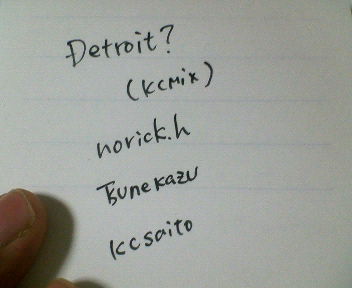 Detroit?
(KCMix)
norick.h
Tsunekazu
kcsaito